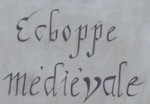 Echoppe
médiévale